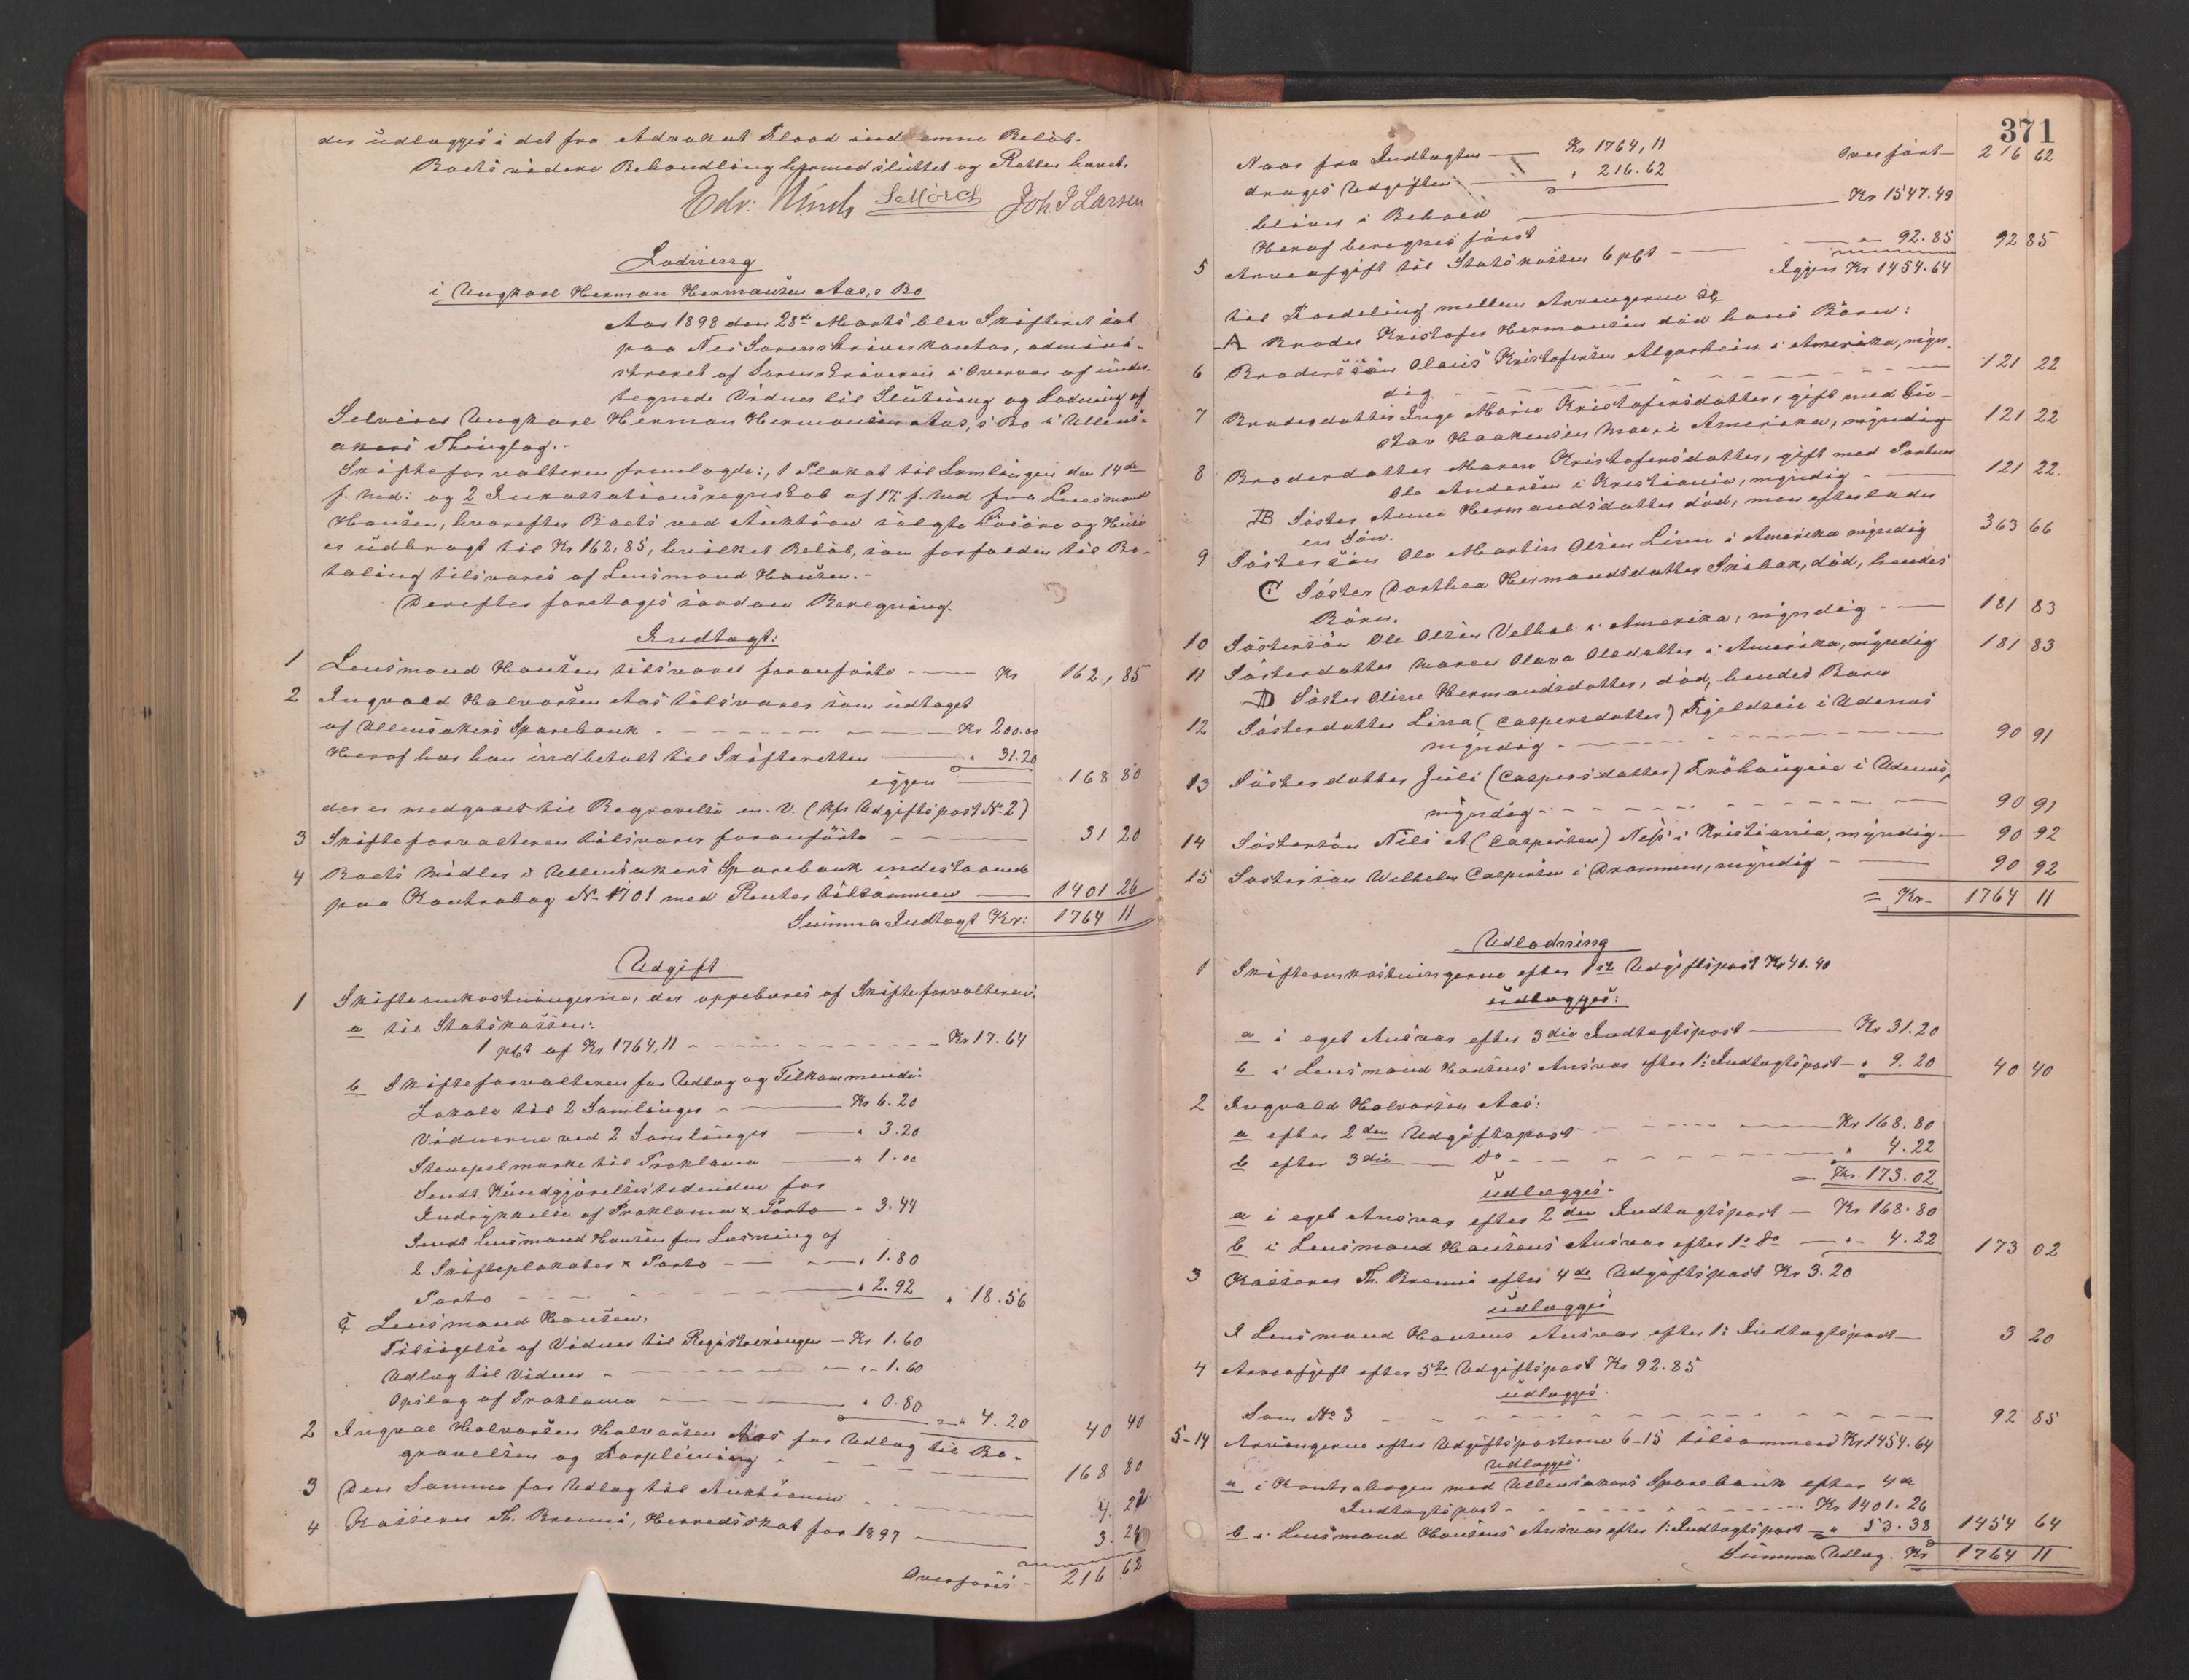 der udlægges i det fra Advokat Blood indkomne Beløb.
Boets videre Behandling hermed sluttet og Retten hævet.
Edv. Munch SMørch Joh S Larsen
Lodning
i Ungkarl Herman Hermansen Aas,s Bo
Aar 1898 den 28de Marts blev Skifteret sat
paa Nes Sorenskriverkontor, admini-
streret af Sorenskriveren i Overvær af under-
tegnede Vidner til Slutning og Lodning af
Selveier Ungkarl Herman Hermansen Aas,s Bo i Ullens-
akers Thinglag.-
Skifteforvalteren fremlagde: 1 Plakat til Samlingen den 14de
f. Md: og 2 Inkassationsregnskab af 17. f. Md fra Lensmand
Hansen, hvorefter Boets ved Auktion solgte Løsøre og Huse
er udbragt til Kr 162,85, hvilket Beløb, som forfalden til Be-
taling tilsvares af Lensmand Hansen.-
Derefter foretages saadan Beregning.
Indtægt:
1 Lensmand Hansen tilsvarer foranførte - Kr 162,85
2 Ingvald Halvorsen Aas tilsvarer som udtaget
af Ullensakers Sparebank - Kr 200.00
Heraf har han indbetalt til Skifteretten " 31.20
igjen 168 80
der er medgaaet til Begravelse m. V. (Kfr Udgiftspost No 2)
3 Skifteforvalteren tilsvarer foranførte - 31 20
4 Boets Midler i Ullensakers Sparebank indestaaende
paa Kontrabog No 1701 med Renter tilsammen 1401 26
Summa Indtægt Kr: 1764 11
Udgift
1 Skifteomkostningerne, der oppebæres af Skifteforvalteren:
a til Statskassen:
1 pCt af Kr 1764,11 - Kr 17.64
b Skifteforvalteren for Udlæg og Tilkommende:
Lokale til 2 Samlinger - Kr 6.20
Vidnerne ved 2 Samlinger " 3.20
Stempelmærke til Proklama " 1.00
Sendt Kundgjørelsestidenden for
Indrykkelse af Proklama & Porto " 3.44
Sendt Lensmand Hansen for Læsning af
2 Skifteplakater & Porto " 1.80
Porto " 2.92 " 18.56
c Lensmand Hansen:
Tilsigelse af Vidner til Registreringen - Kr 1.60
Udlæg til Vidner - " 1.60
Opslag af Proklama - " 0.80
" 4.20 40 40
2 Ingval Halvorsen Halvorsen Aas for Udlæg til Be-
gravelsen og Forpleining - 168 80
3 Den Samme for Udlæg til Auktionen 4. 22
4 Kasserer Th. Bremis, Herredsskat for 1897 3. 20
Overføres - 216 62
371
Overført - 216 62
Naar fra Indtægten Kr 1764,11
drages Udgiften " 216.62
bliver i Behold Kr 1547.49
Heraf beregnes først
5 Arveafgift til Statskassen 6 pCt - " 92.85 92 85
Igjen Kr 1454.64
til Fordeling mellem Arvingerne
A Broder Kristofer Hermansen død hans Børn:
6 Brodersøn Olaus Kristofersen Algarheim i Amerika, myn-
dig 121 22
7 Broderdatter Inge Marie Kristofersdatter, gift med Gu-
stav Haakensen Moe, i Amerika, myndig 121 22
8 Broderdatter Maren Kristofersdatter, gift med Portner
Ole Andersen i Kristiania, myndig - 121 22.
B Søster Anne Hermandsdatter død, men efterlader
en Søn.
9 Søstersøn Ole Martin Olsen Liren i Amerika myndig 363 66
C Søster Dorthea Hermandsdatter Skibak, død, hendes
Børn.
10 Søstersøn Ole Olsen Velhol i Amerika, myndig - 181 83
11 Søsterdatter Maren Olava Olsdatter i Amerika, myndig 181 83
D Søster Oline Hermandsdatter, død, hendes Børn
12 Søsterdatter Lina (Caspersdatter) Fjeldseie i Udenes
myndig - 90 91
13 Søsterdatter Juli (Caspersdatter) Frøhaugeie i Udenes,
myndig - 90 91
14 Søstersøn Nils A (Caspersen) Nes i Kristiania, myndig 90 92
15 Søstersøn Wilhelm Caspersen i Drammen, myndig - 90 92
= Kr. 1764 11
Udlodning
1 Skifteomkostningerne efter 1ste Udgiftspost Kr 40.40
udlægges:
a i eget Ansvar efter 3die Indtægtspost Kr 31.20
b i Lensmand Hansens Ansvar efter 1: Indtægtspost " 9.20 40 40
2 Ingvald Halvorsen Aas:
a efter 2den Udgiftspost Kr 168.80
b efter 3die Do " 4.22
= Kr. 173.02
udlægges:
a i eget Ansvar efter 2den Indtægtspost - Kr 168.80
b i Lensmand Hansens Ansvar efter 1: Do " 4.22 173 02
3 Kasserer Th. Bremis efter 4de Udgiftspost Kr 3.20
udlægges
I Lensmand Hansens Ansvar efter 1: Indtægtspost 3 20
4 Arveafgift efter 5te Udgiftspost Kr 92.85
udlægges.
Som No 3 92 85
5-14 Arvingerne efter Udgiftsposterne 6-15 tilsammen Kr 1454.64
Udlægges:
a i Kontrabogen med Ullensakers Sparebank efter 4de
Indtægtspost Kr 1401.26
b i Lensmand Hansens Ansvar efter 1: Indtægtspost " 53.38 1454 64
Summa Udlæg. Kr 1764 11